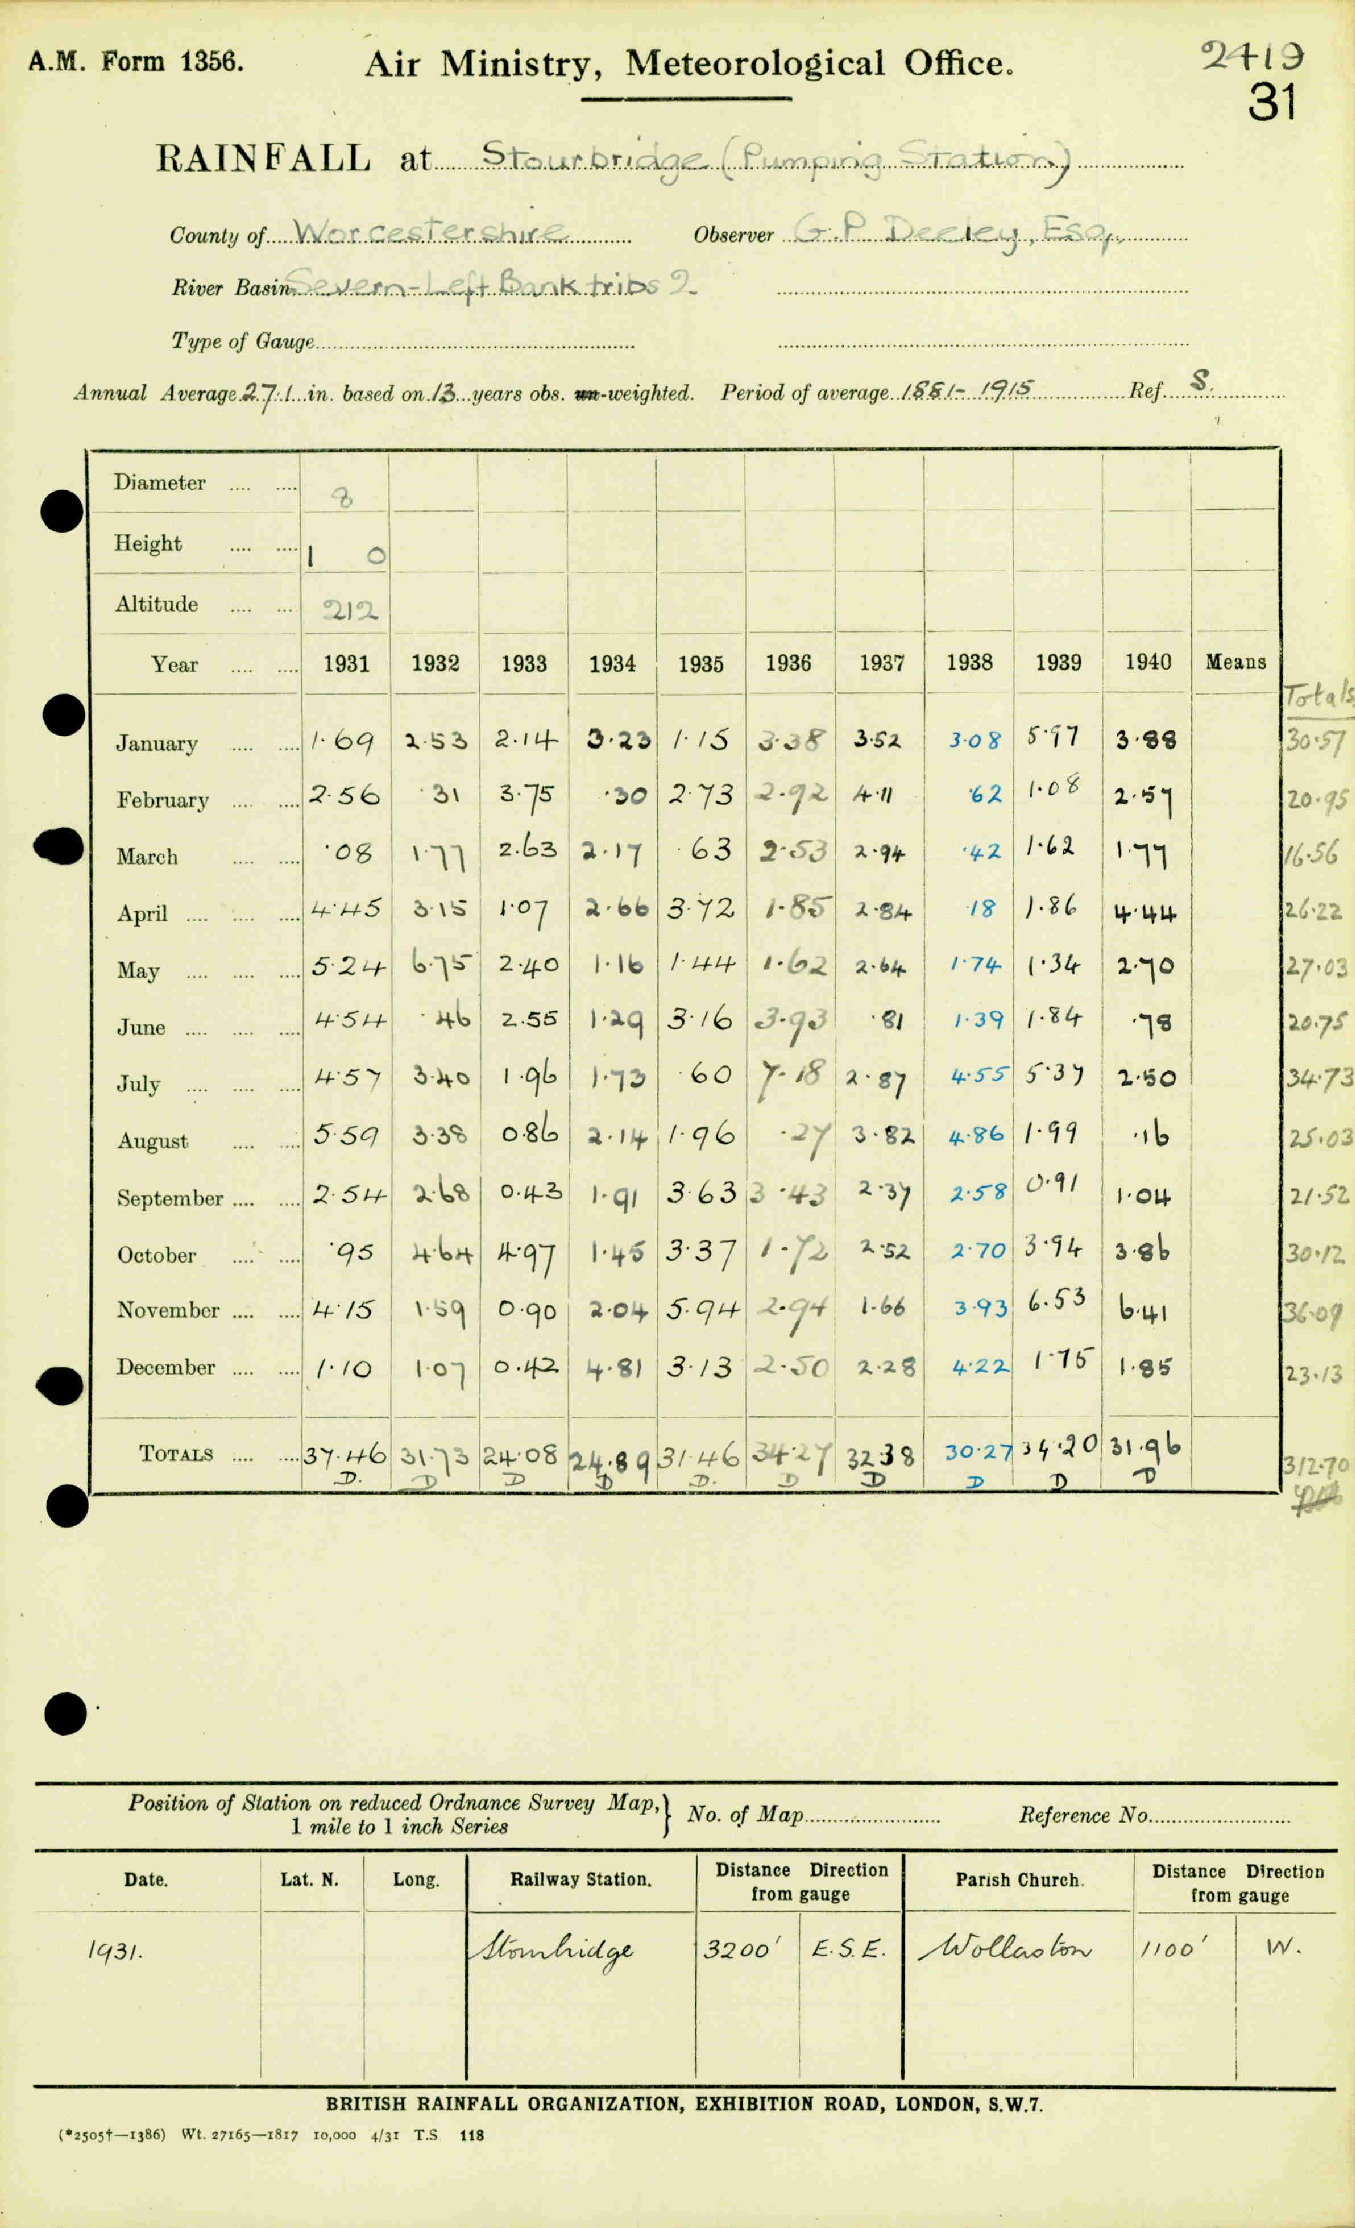 A.M. Form 1356.
Air Ministry, Meteorological Office.
2419
31
RAINFALL at Stourbridge (Pumping Station)
County of Worcestershire Observer G.P. Deeley, Esq.,
River Basin Severn-Left Bank tribs 2
Type of Gauge
Annual Average 27.1 in. based on 13 years obs. un-weighted. Period of average 1881-1915 Ref. S.
Diameter 8
Height 1 0
Altitude 212
Year 1931 1932 1933 1934 1935 1936 1937 1938 1939 1940 Means
Totals
January 1.69 2.53 2.14 3.23 1.15 3.38 3.52 3.08 5.97 3.88 30.57
February 2.56 .31 3.75 .30 2.73 2.92 4.11 .62 1.08 2.57 20.95
March .08 1.77 2.63 2.17 .63 2.53 2.94 .42 1.62 1.77 16.56
April 4.45 3.15 1.07 2.66 3.72 1.85 2.84 .18 1.86 4.44 26.22
May 5.24 6.75 2.40 1.16 1.44 1.62 2.64 1.74 1.34 2.70 27.03
June 4.54 .46 2.55 1.29 3.16 3.93 .81 1.39 1.84 .78 20.75
July 4.57 3.40 1.96 1.73 .60 7.18 2.87 4.55 5.37 2.50 34.73
August 5.59 3.38 0.86 2.14 1.96 .27 3.82 4.86 1.99 .16 25.03
September 2.54 2.68 0.43 1.91 3.63 3.43 2.37 2.58 0.91 1.04 21.52
October .95 4.64 4.97 1.45 3.37 1.72 2.52 2.70 3.94 3.86 30.12
November 4.15 1.59 0.90 2.04 5.94 2.94 1.66 3.93 6.53 6.41 36.09
December 1.10 1.07 0.42 4.81 3.13 2.50 2.28 4.22 1.75 1.85 23.13
TOTALS 37.46 31.73 24.08 24.89 31.46 34.27 32.38 30.27 34.20 31.96 312.70
D. D D D D. D D D D D
Position of Station on reduced Ordnance Survey Map, } No. of Map Reference No.
1 mile to 1 inch Series
Date. Lat. N. Long. Railway Station. Distance Direction from gauge Parish Church. Distance Direction from gauge
1931. Stourbridge 3200' E.S.E. Wollaston 1100' W.
BRITISH RAINFALL ORGANIZATION, EXHIBITION ROAD, LONDON, S.W.7.
(*2505†—1386) Wt. 27165—1817 10,000 4/31 T.S 118